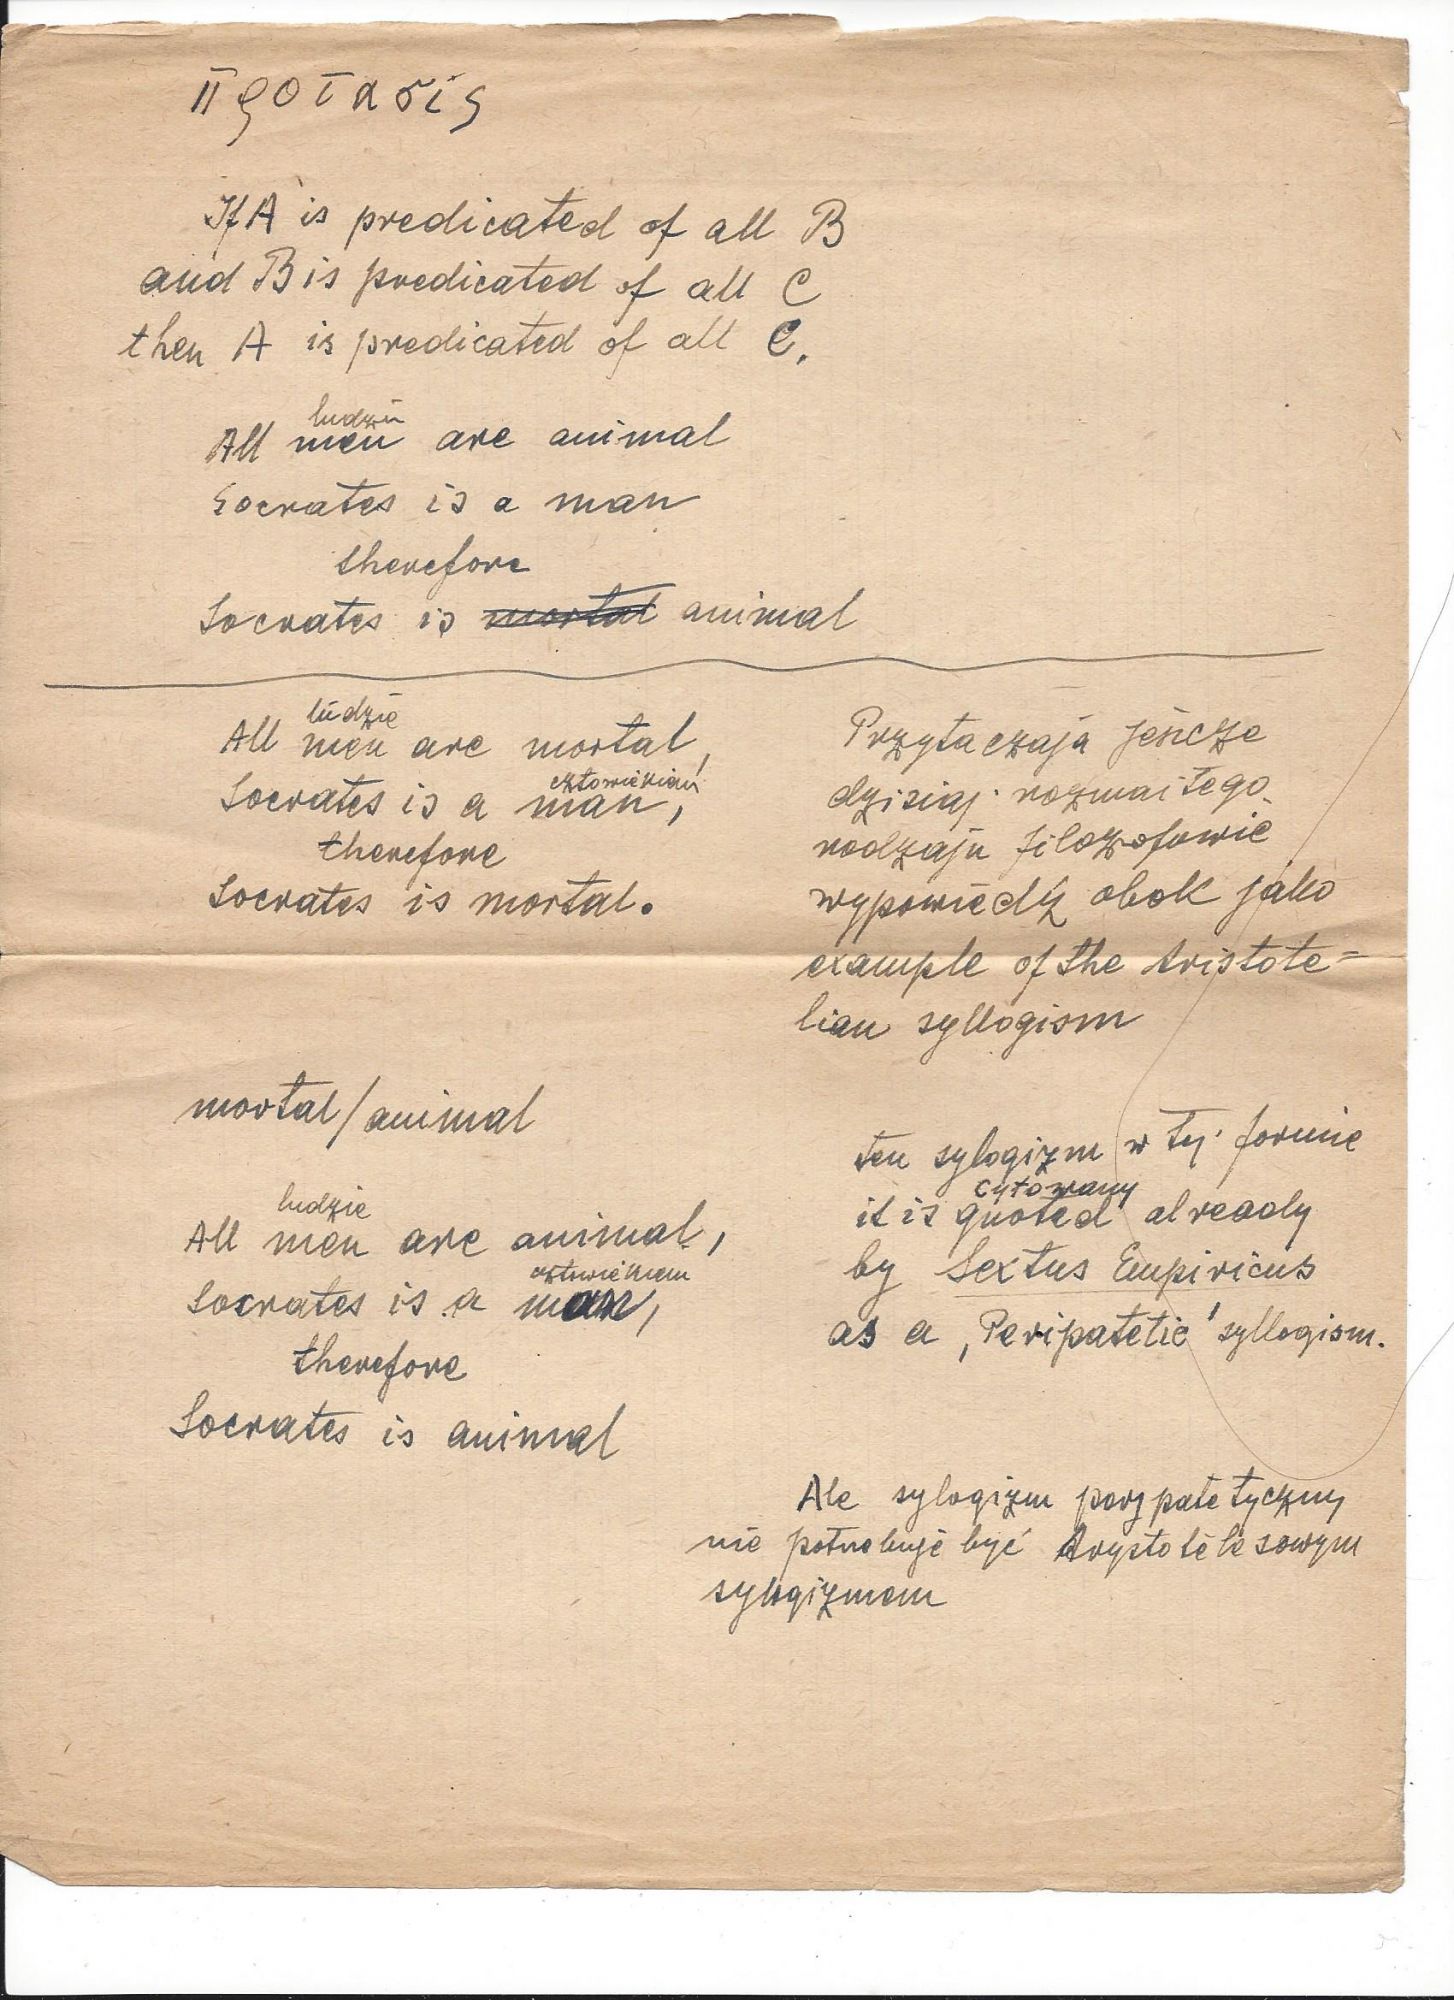 Προτασις
If A is predicated of all B
and B is predicated of all C
then A is predicated of all C.
ludzie
All men are animal
Socrates is a man
therefore
Socrates is mortal animal
ludzie
All men are mortal,
człowiekiem
Socrates is a man,
therefore
Socrates is mortal.
Przytaczają jeszcze
dzisiaj rozmaitego
rodzaju filozofowie
wypowiedź obok jako
example of the Aristote=
lian syllogism
mortal/animal
ludzie
All men are animal,
człowiekiem
Socrates is a man,
therefore
Socrates is animal
ten sylogizm w tej formie
cytowany
it is quoted already
by Sextus Empiricus
as a ,Peripatetic' syllogism.
Ale sylogizm perypatetyczny
nie potrzebuje być Arystotelesowym
sylogizmem